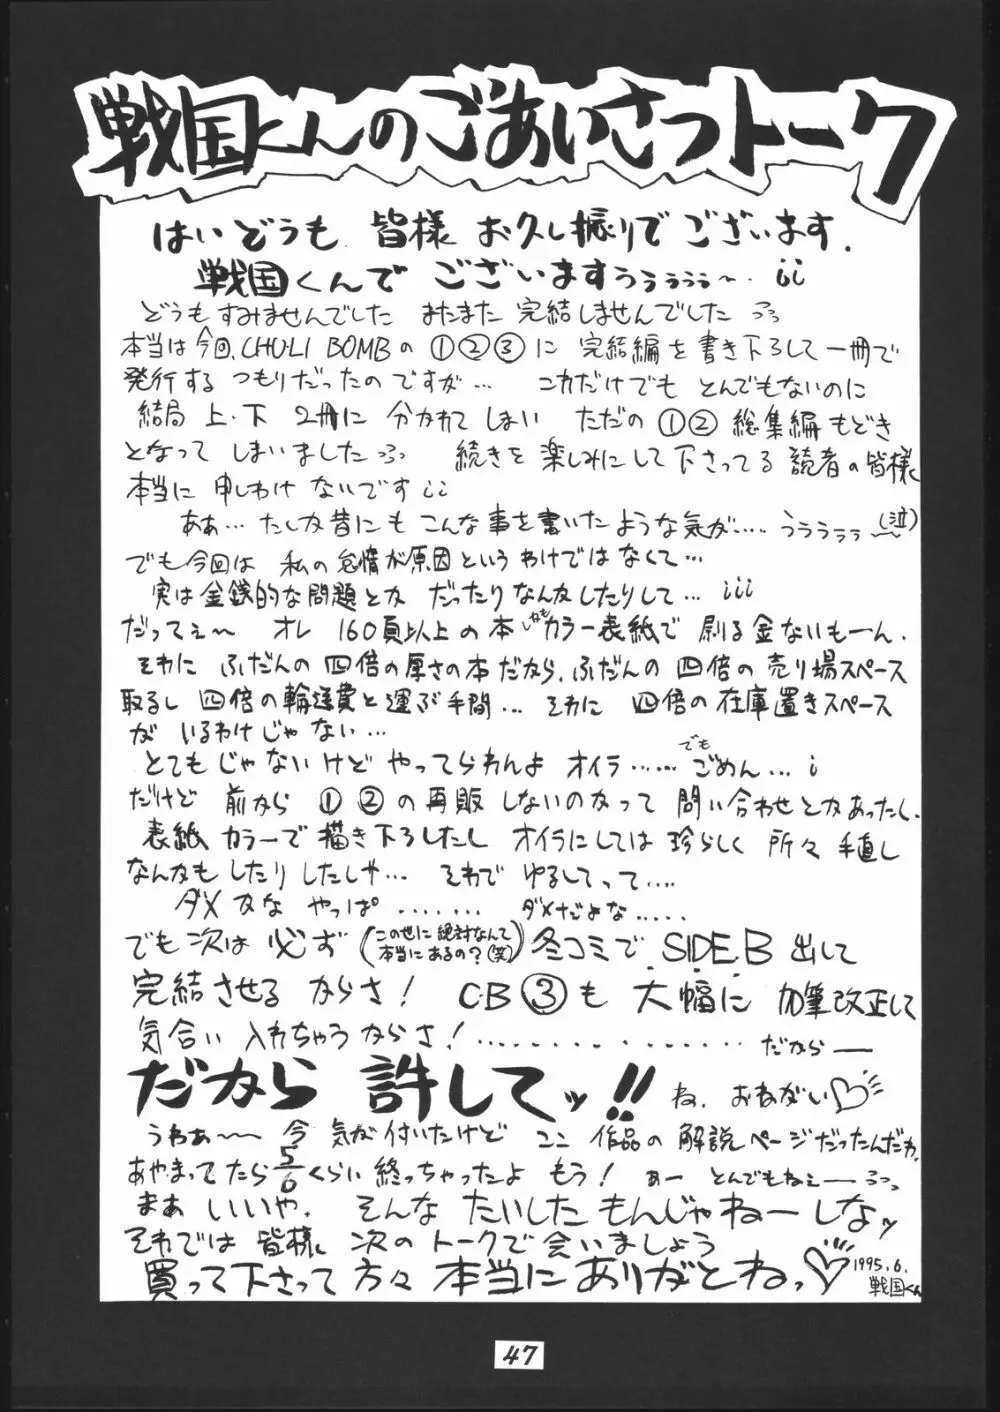 戦国くんのごあいさつトーク
はいどうも 皆様 お久し振りでございます.
戦国くんで ございますぅぅぅぅぅ〜.. ii
どうもすみませんでした またまた 完結しませんでした
本当は今回, CHU-LI BOMBの ①②③に 完結編を書き下ろして一冊で
発行する つもりだったのですが… これだけでも とんでもないのに
結局 上・下 2冊に 分かれてしまい ただの ①② 総集編もどき
となって しまいました 続きを楽しみにして下さってる読者の皆様
本当に 申しわけ ないです ii
ああ… たしか昔にも こんな事を書いたような気が…‥ うぅぅぅぅ(泣)
でも今回は 私の怠惰が原因というわけではなくて…
実は金銭的な問題とか だったりなんかしたりして… iii
だってぇ〜 オレ 160頁以上の本しかもカラー表紙で刷る金ないもーん.
それに ふだんの四倍の厚さの本だから,ふだんの 四倍の売り場スペース
取るし 四倍の輸送費と運ぶ手間… それに 四倍の在庫置きスペース
が いるわけじゃない…
とてもじゃないけど やってらわんよ オイラ…… でもごめん… i
だけど 前から ①②の再販しないのかって 問い合わせとかあったし.
表紙カラーで描き下ろしたし オイラにしては珍らしく 所々手直し
なんかもしたりしたしゃ… それで ゆるしてって….
ダメかな やっぱ ……. ダメだよな…..
でも次は 必ず (この世に絶対なんて本当にあるの?(笑)) 冬コミで SIDE.B 出して
完結させる からさ! C・B③も 大幅に 加筆改正して
気合い 入れちゃうからさ! ................. だから ―
だから 許してッ!! ね、おねがい♡
うわぁ〜 今 気が付いたけど ここ 作品の解説ページだったんだわ.
あやまってたら5/6くらい終っちゃったよ もう! あー とんでもねぇー
まあ いいや. そんな たいした もんじゃねーしなッ
それでは 皆様 次のトークで会いましょう
買って下さって方々 本当にありがとねっ♡ 1995.6.
戦国くん
47